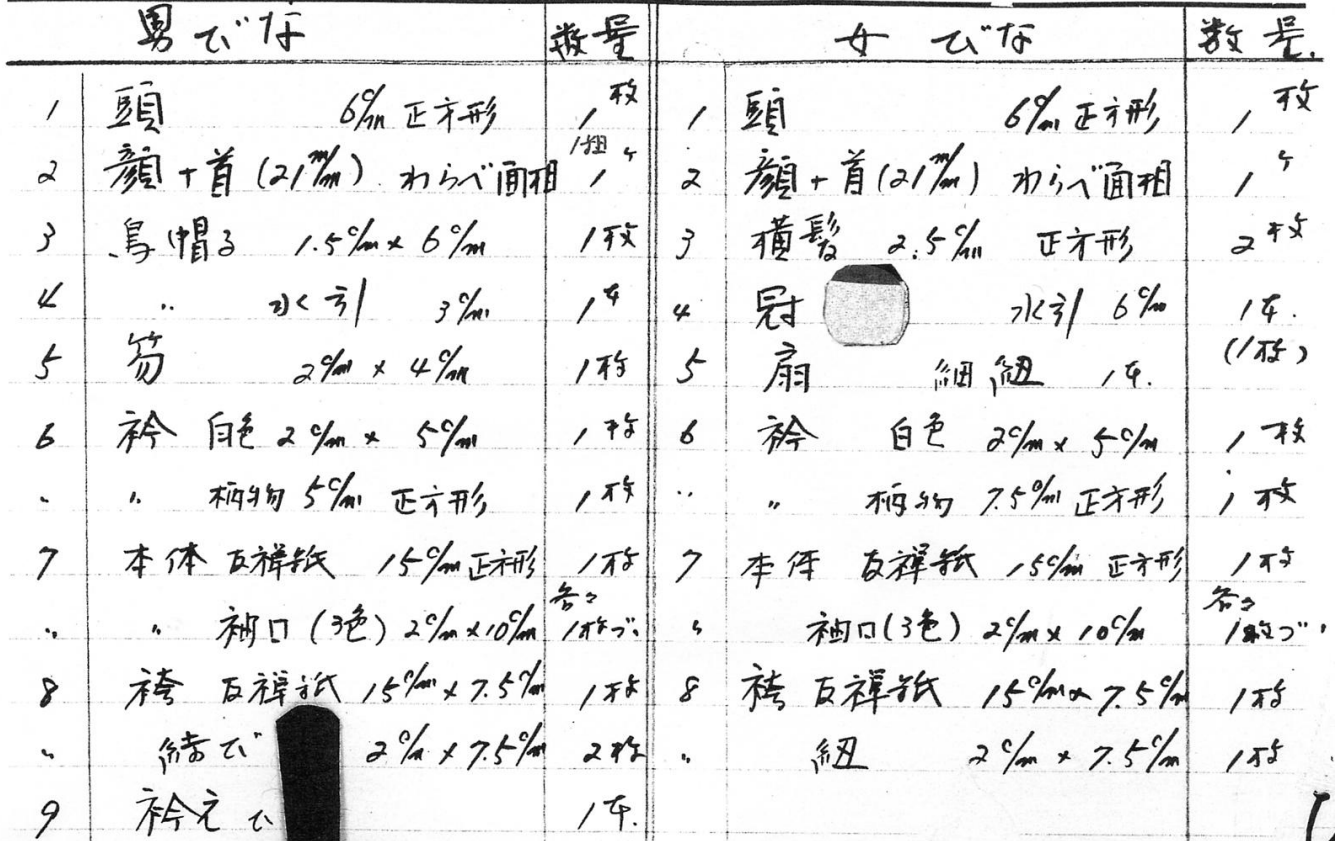 男びな 数量 女びな 数量.
1 頭 6c/m 正方形 1枚 1 頭 6c/m 正方形 1枚
2 顔+首(21m/m) わらべ面相 1組 1〃 2 顔+首(21m/m) わらべ面相 1〃
3 烏帽子 1.5c/m×6c/m 1枚 3 横髪 2.5c/m 正方形 2枚
4 〃 水引 3c/m 1本 4 冠 水引 6c/m 1本.
5 笏 2c/m×4c/m 1枚 5 扇 細紐 1本. (1枚)
6 衿 白色 2c/m×5c/m 1枚 6 衿 白色 2c/m×5c/m 1枚
〃 〃 柄物 5c/m 正方形 1枚 〃 〃 柄物 7.5c/m 正方形 1枚
7 本体 友禅紙 15c/m 正方形 1枚 7 本体 友禅紙 15c/m 正方形 1枚
〃 〃 袖口(3色) 2c/m×10c/m 各々1枚づゝ 〃 袖口(3色) 2c/m×10c/m 各々1枚づゝ
8 袴 友禅紙 15c/m×7.5c/m 1枚 8 袴 友禅紙 15c/m×7.5c/m 1枚
〃 結び 2c/m×7.5c/m 2枚 〃 紐 2c/m×7.5c/m 1枚
9 衿元ひ 1本.